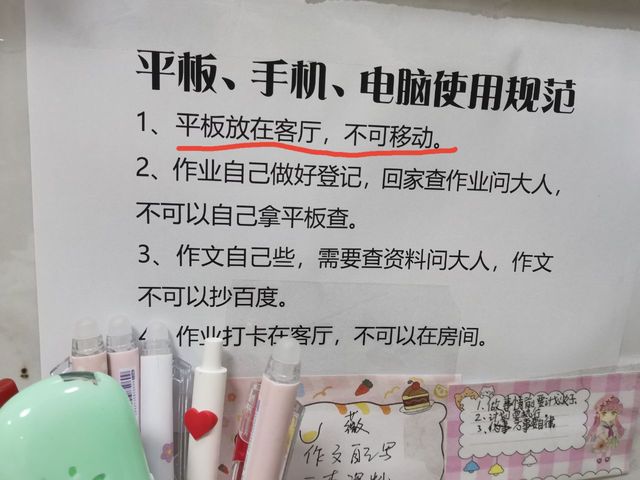 平板、手机、电脑使用规范
1、平板放在客厅，不可移动。
2、作业自己做好登记，回家查作业问大人，
不可以自己拿平板查。
3、作文自己些，需要查资料问大人，作文
不可以抄百度。
4、作业打卡在客厅，不可以在房间。
1.做事情前要计划好
2.计划
3.做事
薇
作文自己写